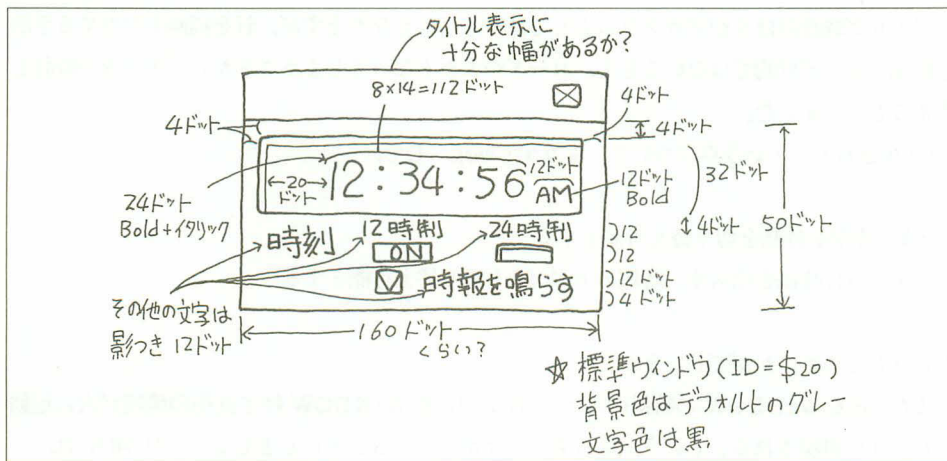 タイトル表示に
十分な幅があるか?
8×14=112ドット
4ドット
4ドット
4ドット
20
ドット
12:34:56
12ドット
AM
12ドット
Bold
32ドット
24ドット
Bold+イタリック
4ドット
50ドット
時刻
12時制
24時制
ON
)12
)12
)12ドット
)4ドット
時報を鳴らす
その他の文字は
影つき 12ドット
160ドット
くらい?
☆ 標準ウィンドウ(ID=$20)
背景色はデフォルトのグレー
文字色は黒